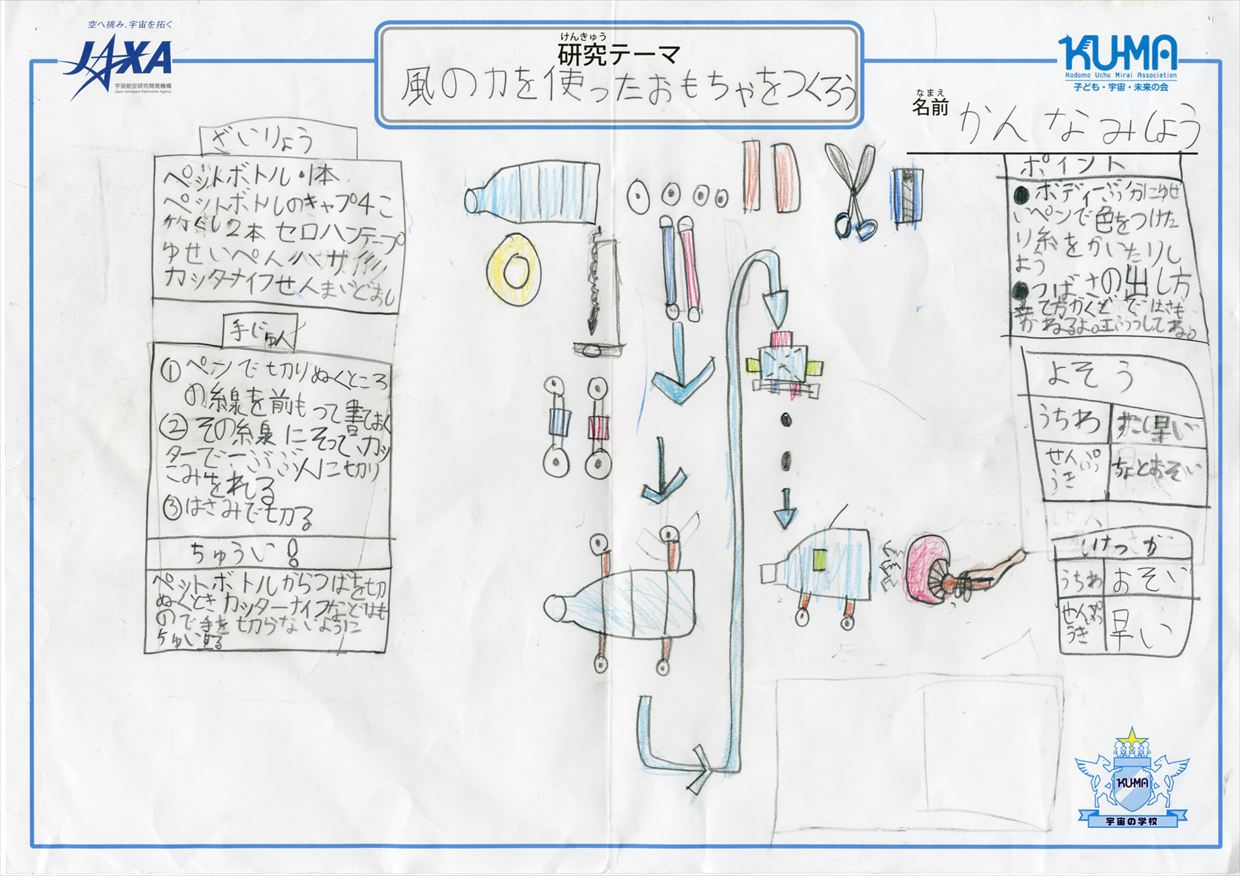 空へ挑み、宇宙を拓く
JAXA
宇宙航空研究開発機構
Japan Aerospace Exploration Agency
けんきゅう
研究テーマ
風の力を使ったおもちゃをつくろう
KU-MA
Kodomo Uchu Mirai Association
子ども・宇宙・未来の会
なまえ
名前
かんなみしょう
ざいりょう
ペットボトル・1本
ペットボトルのキャプ4こ
竹ぐし2本 セロハンテープ
ゆせいぺん ハサ
カッタナイフせんまいどおし
手じゅん
① ペンで切りぬくところ
の線を前もって書ておく
② その線にそってカッ
ターで一ぶぶんに切り
こみをれる
③はさみで切る
ちゅうい!
ペットボトルからつばを切
ぬくときカッターナイフなどはも
ので手を切らないように
ちゅいする
ポイント
●ボディーぶ分にゆせ
いペンで色をつけた
り糸をかいたりし
よう
●つばさの出し方
よそう
うちわ すこし早い
せんぷうき ちょとおそい
けっか
うちわ おそい
せんぷうき 早い
KU-MA
宇宙の学校